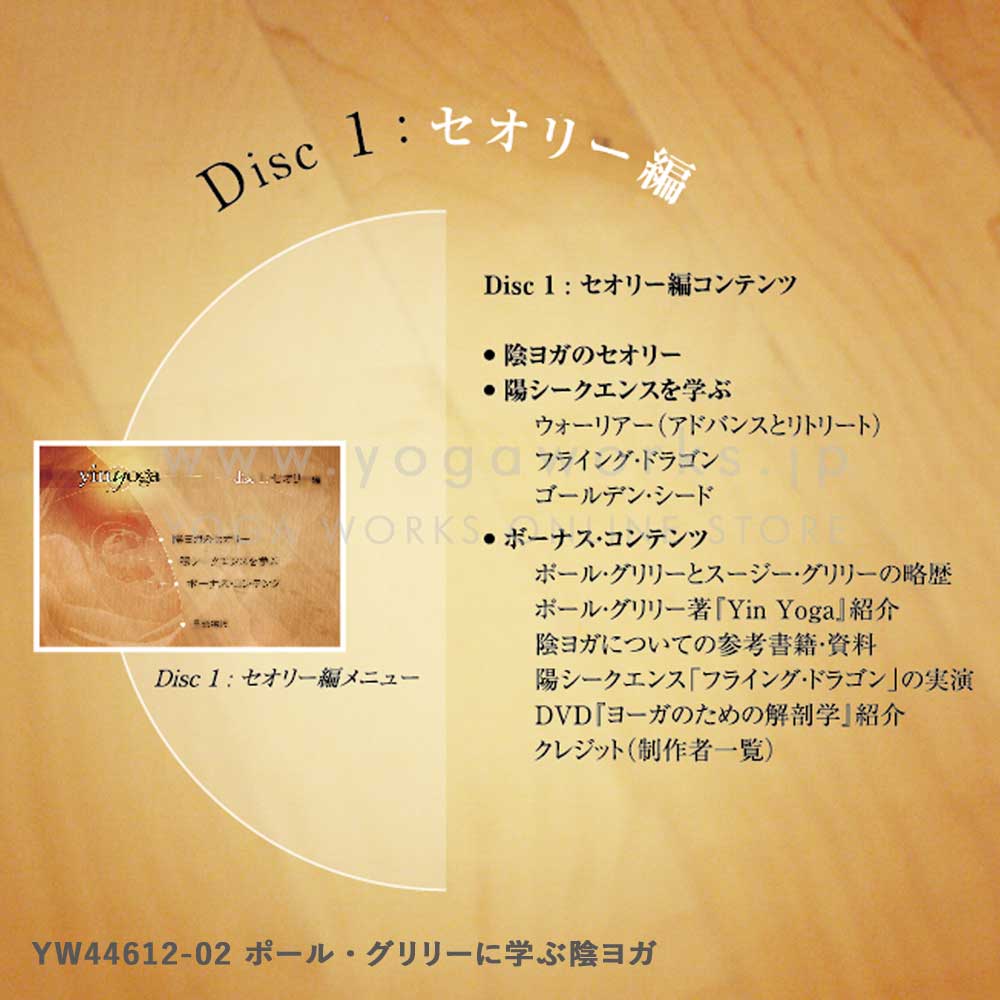 Disc 1：セオリー編
Disc 1：セオリー編コンテンツ
• 陰ヨガのセオリー
• 陽シークエンスを学ぶ
ウォーリアー（アドバンスとリトリート）
フライング・ドラゴン
ゴールデン・シード
• ボーナス・コンテンツ
ポール・グリリーとスージー・グリリーの略歴
ポール・グリリー著『Yin Yoga』紹介
陰ヨガについての参考書籍・資料
陽シークエンス「フライング・ドラゴン」の実演
DVD『ヨーガのための解剖学』紹介
クレジット（制作者一覧）
www.yogaworks.jp
YOGA WORKS ONLINE STORE
yinyoga
disc 1:セオリー編
陰ヨガのセオリー
陽シークエンスを学ぶ
ボーナス・コンテンツ
Disc 1：セオリー編メニュー
YW44612-02 ポール・グリリーに学ぶ陰ヨガ